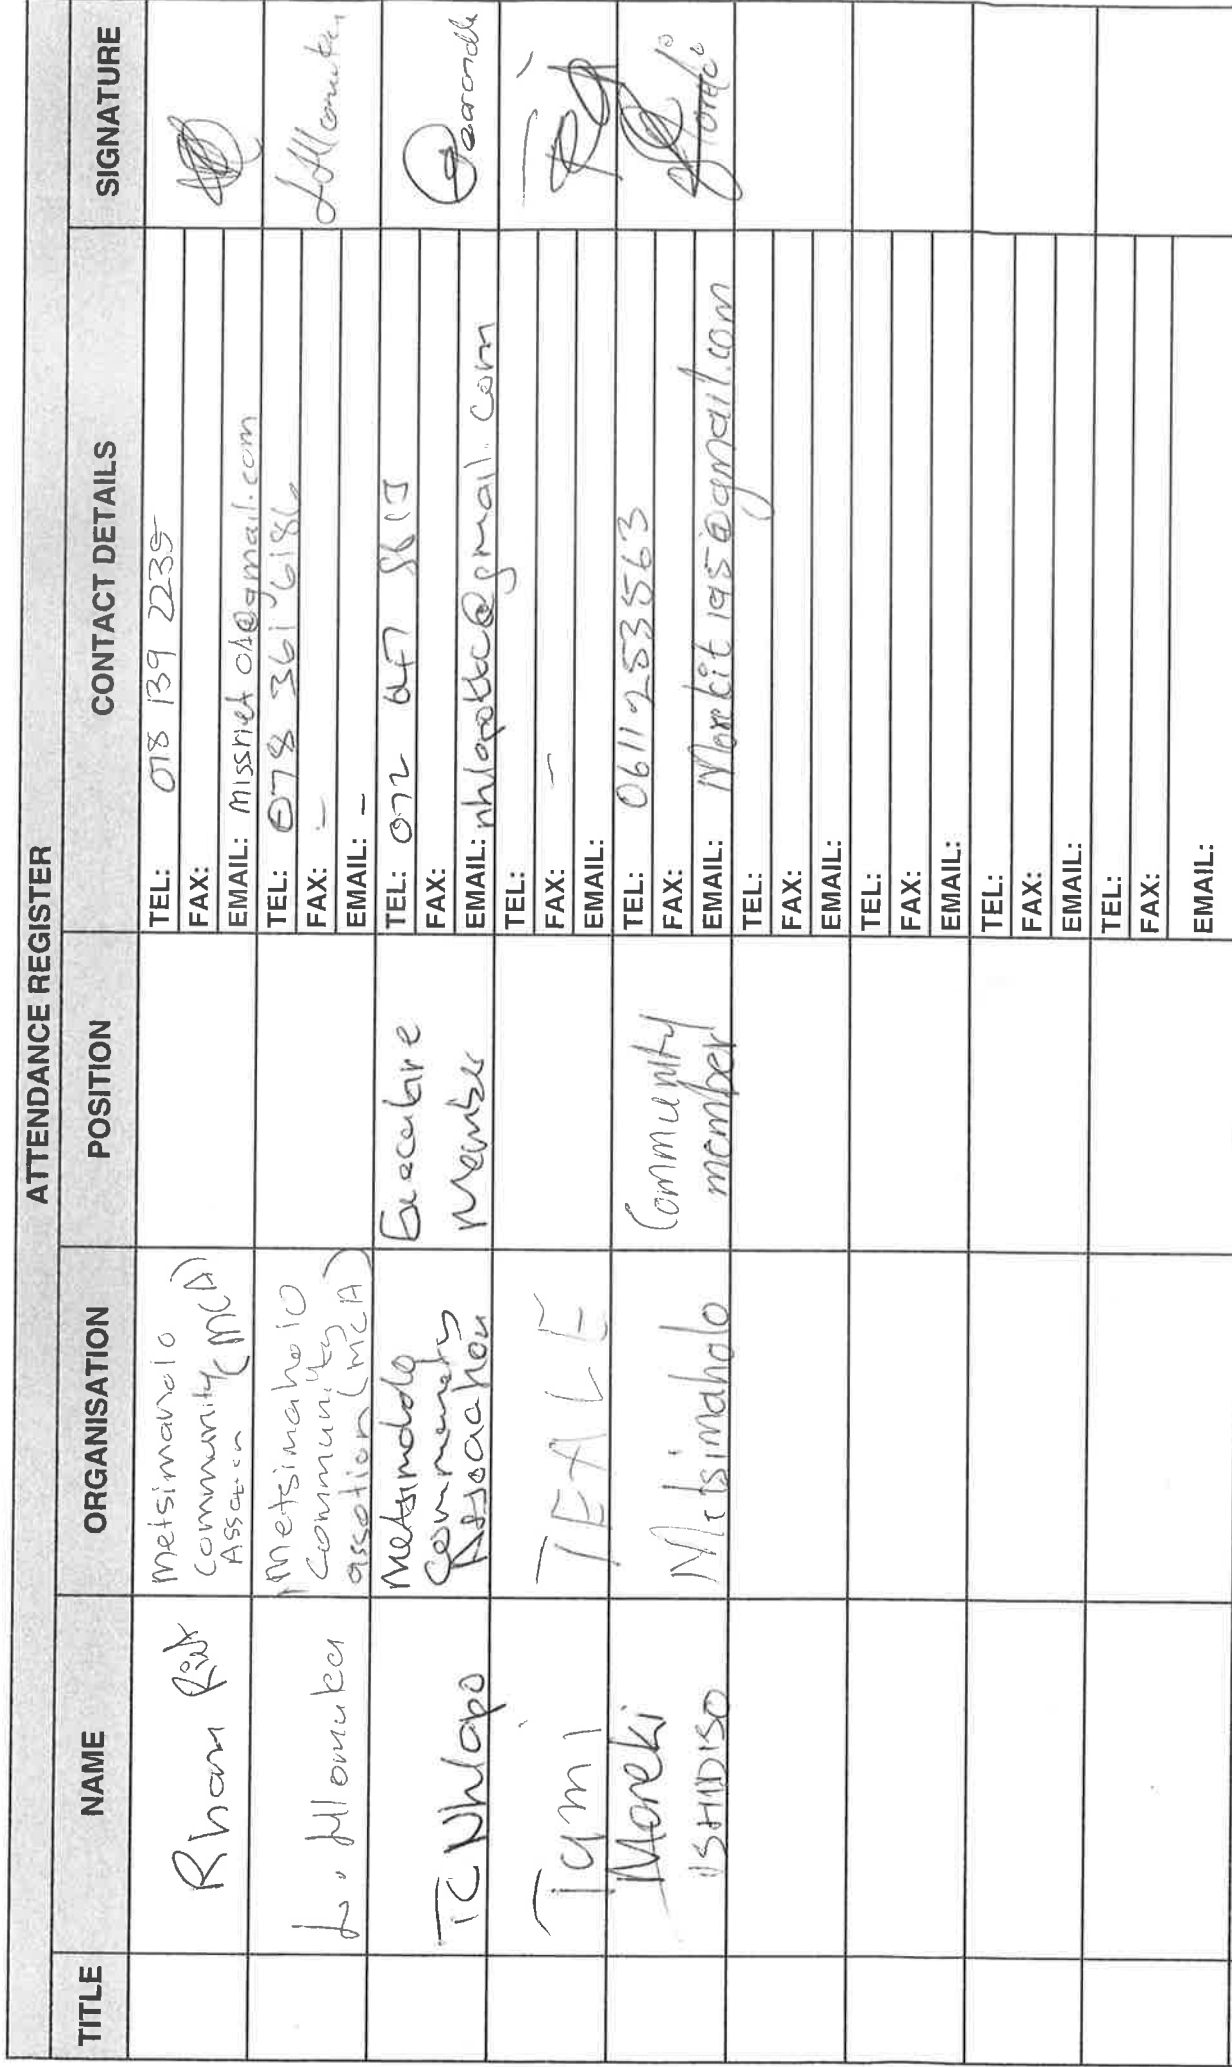 ATTENDANCE REGISTER
TITLE NAME ORGANISATION POSITION CONTACT DETAILS SIGNATURE
Rham
Metsimaholo
Community (MCA)
TEL: 078 139 2235
FAX:
EMAIL: Missriet
Metsimaholo
Community
assotion (MCA)
TEL: 078 361 6186
FAX: -
EMAIL: -
TC Nhlapo
Metsimaholo
Community
Association
Executive
Member
TEL: 072 647
FAX:
EMAIL:
TEALE
TEL:
FAX: -
EMAIL:
Moreki
TSHIDISO
Metsimaholo
Community
member
TEL: 0611253563
FAX:
EMAIL: Morekit195@gmail.com
TEL:
FAX:
EMAIL:
TEL:
FAX:
EMAIL:
TEL:
FAX:
EMAIL:
TEL:
FAX:
EMAIL: